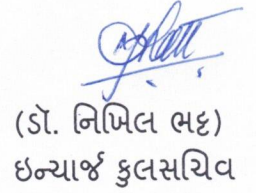 (ડૉ. નિખિલ ભટ્ટ)
ઇન્ચાર્જ કુલસચિવ